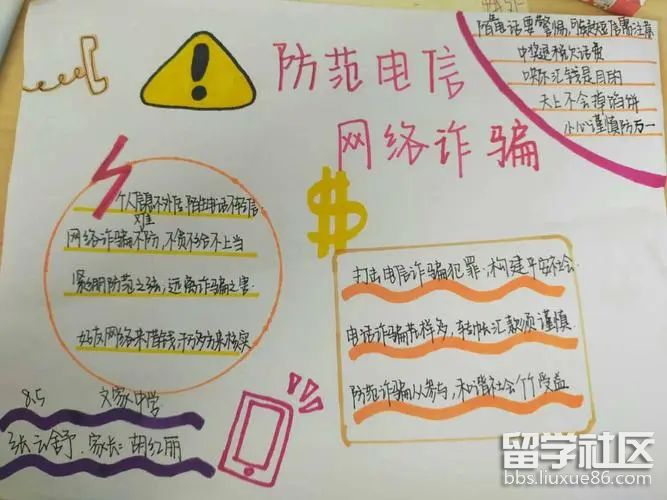 防范电信
网络诈骗
陌生电话要警惕,可疑短信需注意
中奖退税欠话费
哄你汇钱是目的
天上不会掉馅饼
小心谨慎防万一
个人信息不外传 陌生电话不轻信
网络诈骗难不防,不贪不给不上当
紧绷防范之弦,远离诈骗之害
好友网络来借钱,千万多方来核实
打击电信诈骗犯罪,构建平安社会
电话诈骗花样多,转帐汇款须谨慎
防范诈骗人参与,和谐社会个个受益
8.5 文家中学
张云舒.家长:胡红丽
留学社区
bbs.liuxue86.com